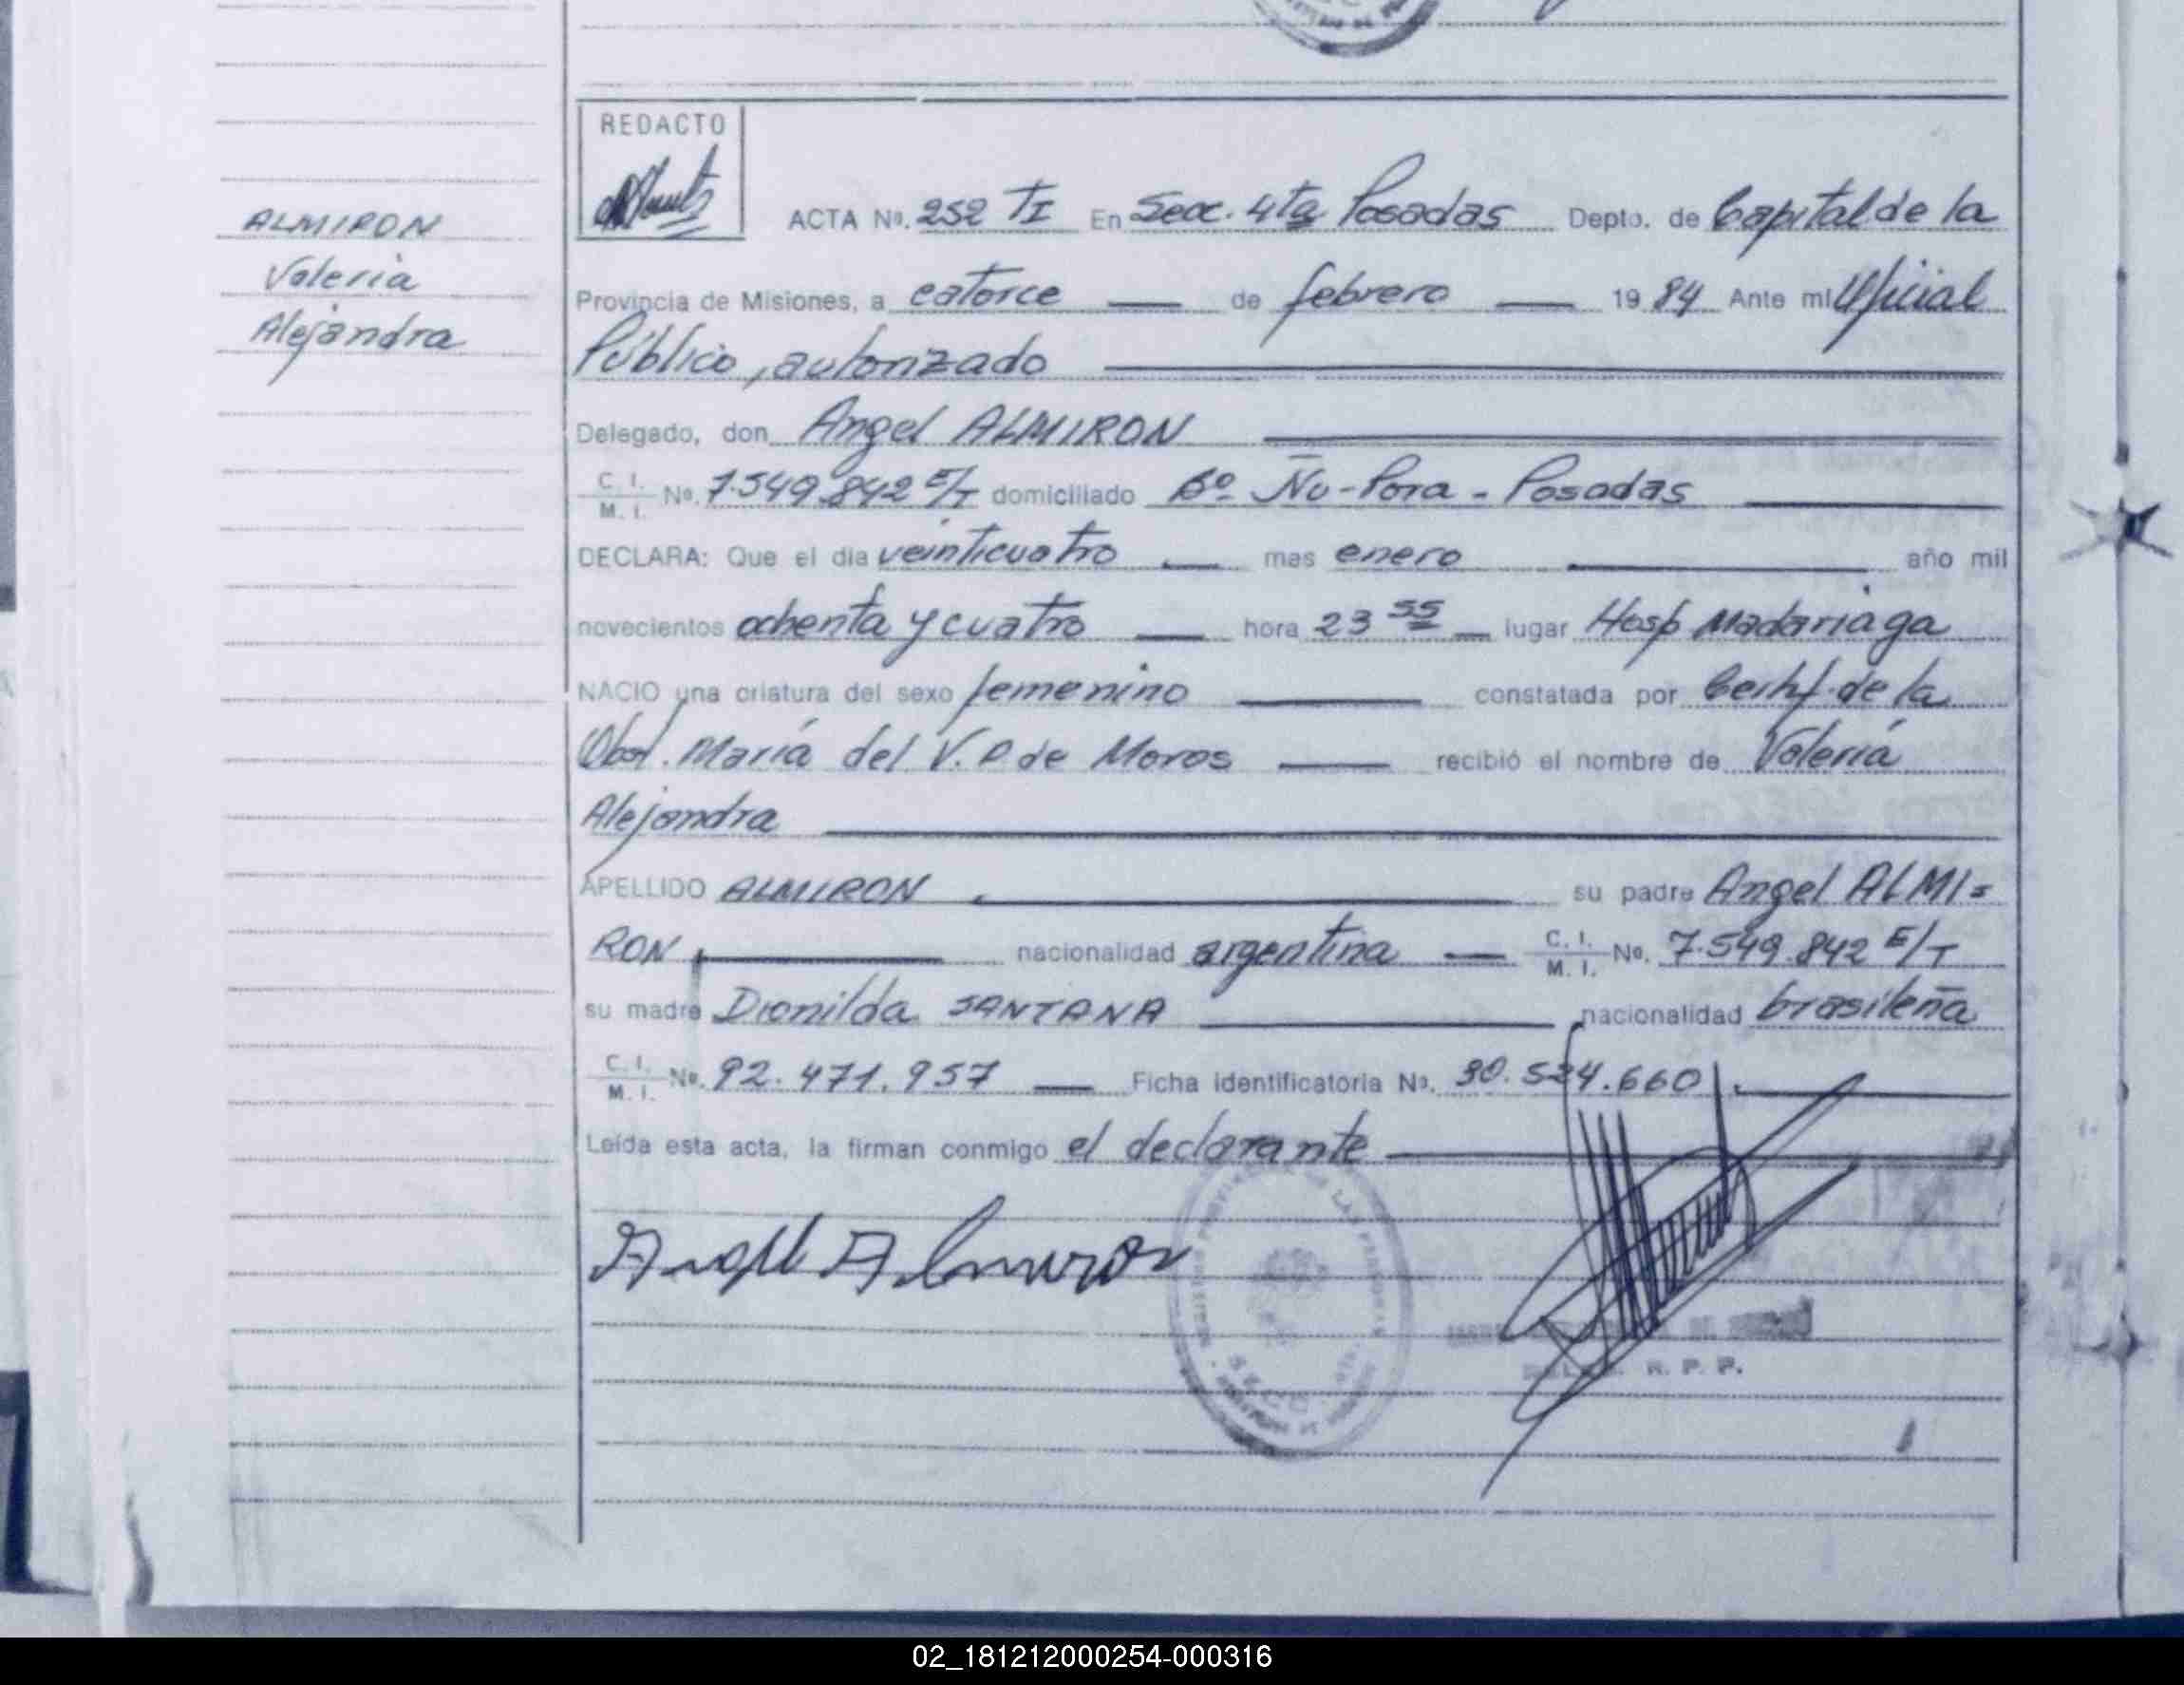 REDACTO
ACTA Nº. 252 TI En Secc. 4ta Posadas Depto. de Capital de la
ALMIRON
Valeria
Alejandra
Provincia de Misiones, a catorce de febrero 19 84 Ante mi Oficial
Público, autorizado
Delegado, don Angel ALMIRON
C. I.
M. I. Nº. 7.549.842 E/T domiciliado Bº Ñu-Pora - Posadas
DECLARA: Que el dia veinticuatro mes enero año mil
novecientos ochenta y cuatro hora 23 55 lugar Hosp Madariaga
NACIO una criatura del sexo femenino constatada por Certif. de la
Obst. María del V. P. de Moros recibió el nombre de Valeria
Alejandra
APELLIDO ALMIRON su padre Angel ALMI=
RON nacionalidad argentina C. I. M. I. Nº. 7.549.842 E/T
su madre Dionilda SANTANA nacionalidad brasileña
C. I.
M. I. Nº. 92.471.957 Ficha identificatoria Nº. 30.524.660
Leída esta acta, la firman conmigo el declarante
Angel Almiron
R. P. P.
02_181212000254-000316